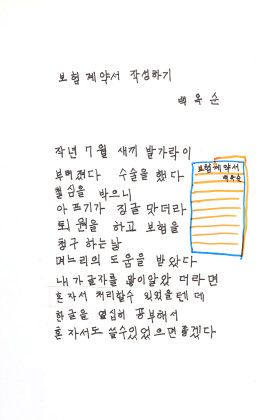 보험 계약서 작성하기
백옥순
작년 7월 새끼 발가락이
부버졌다 수술을 했다
철심을 박으니
아프기가 징글 맞더라
퇴원을 하고 보험을
청구 하는날
며느리의 도움을 받았다
내가 글자를 많이알았 더라면
혼자서 처리할수 있었을텐데
한글을 열심히 공부해서
혼자서도 쓸수있었으면좋겠다
보험계약서
백옥순